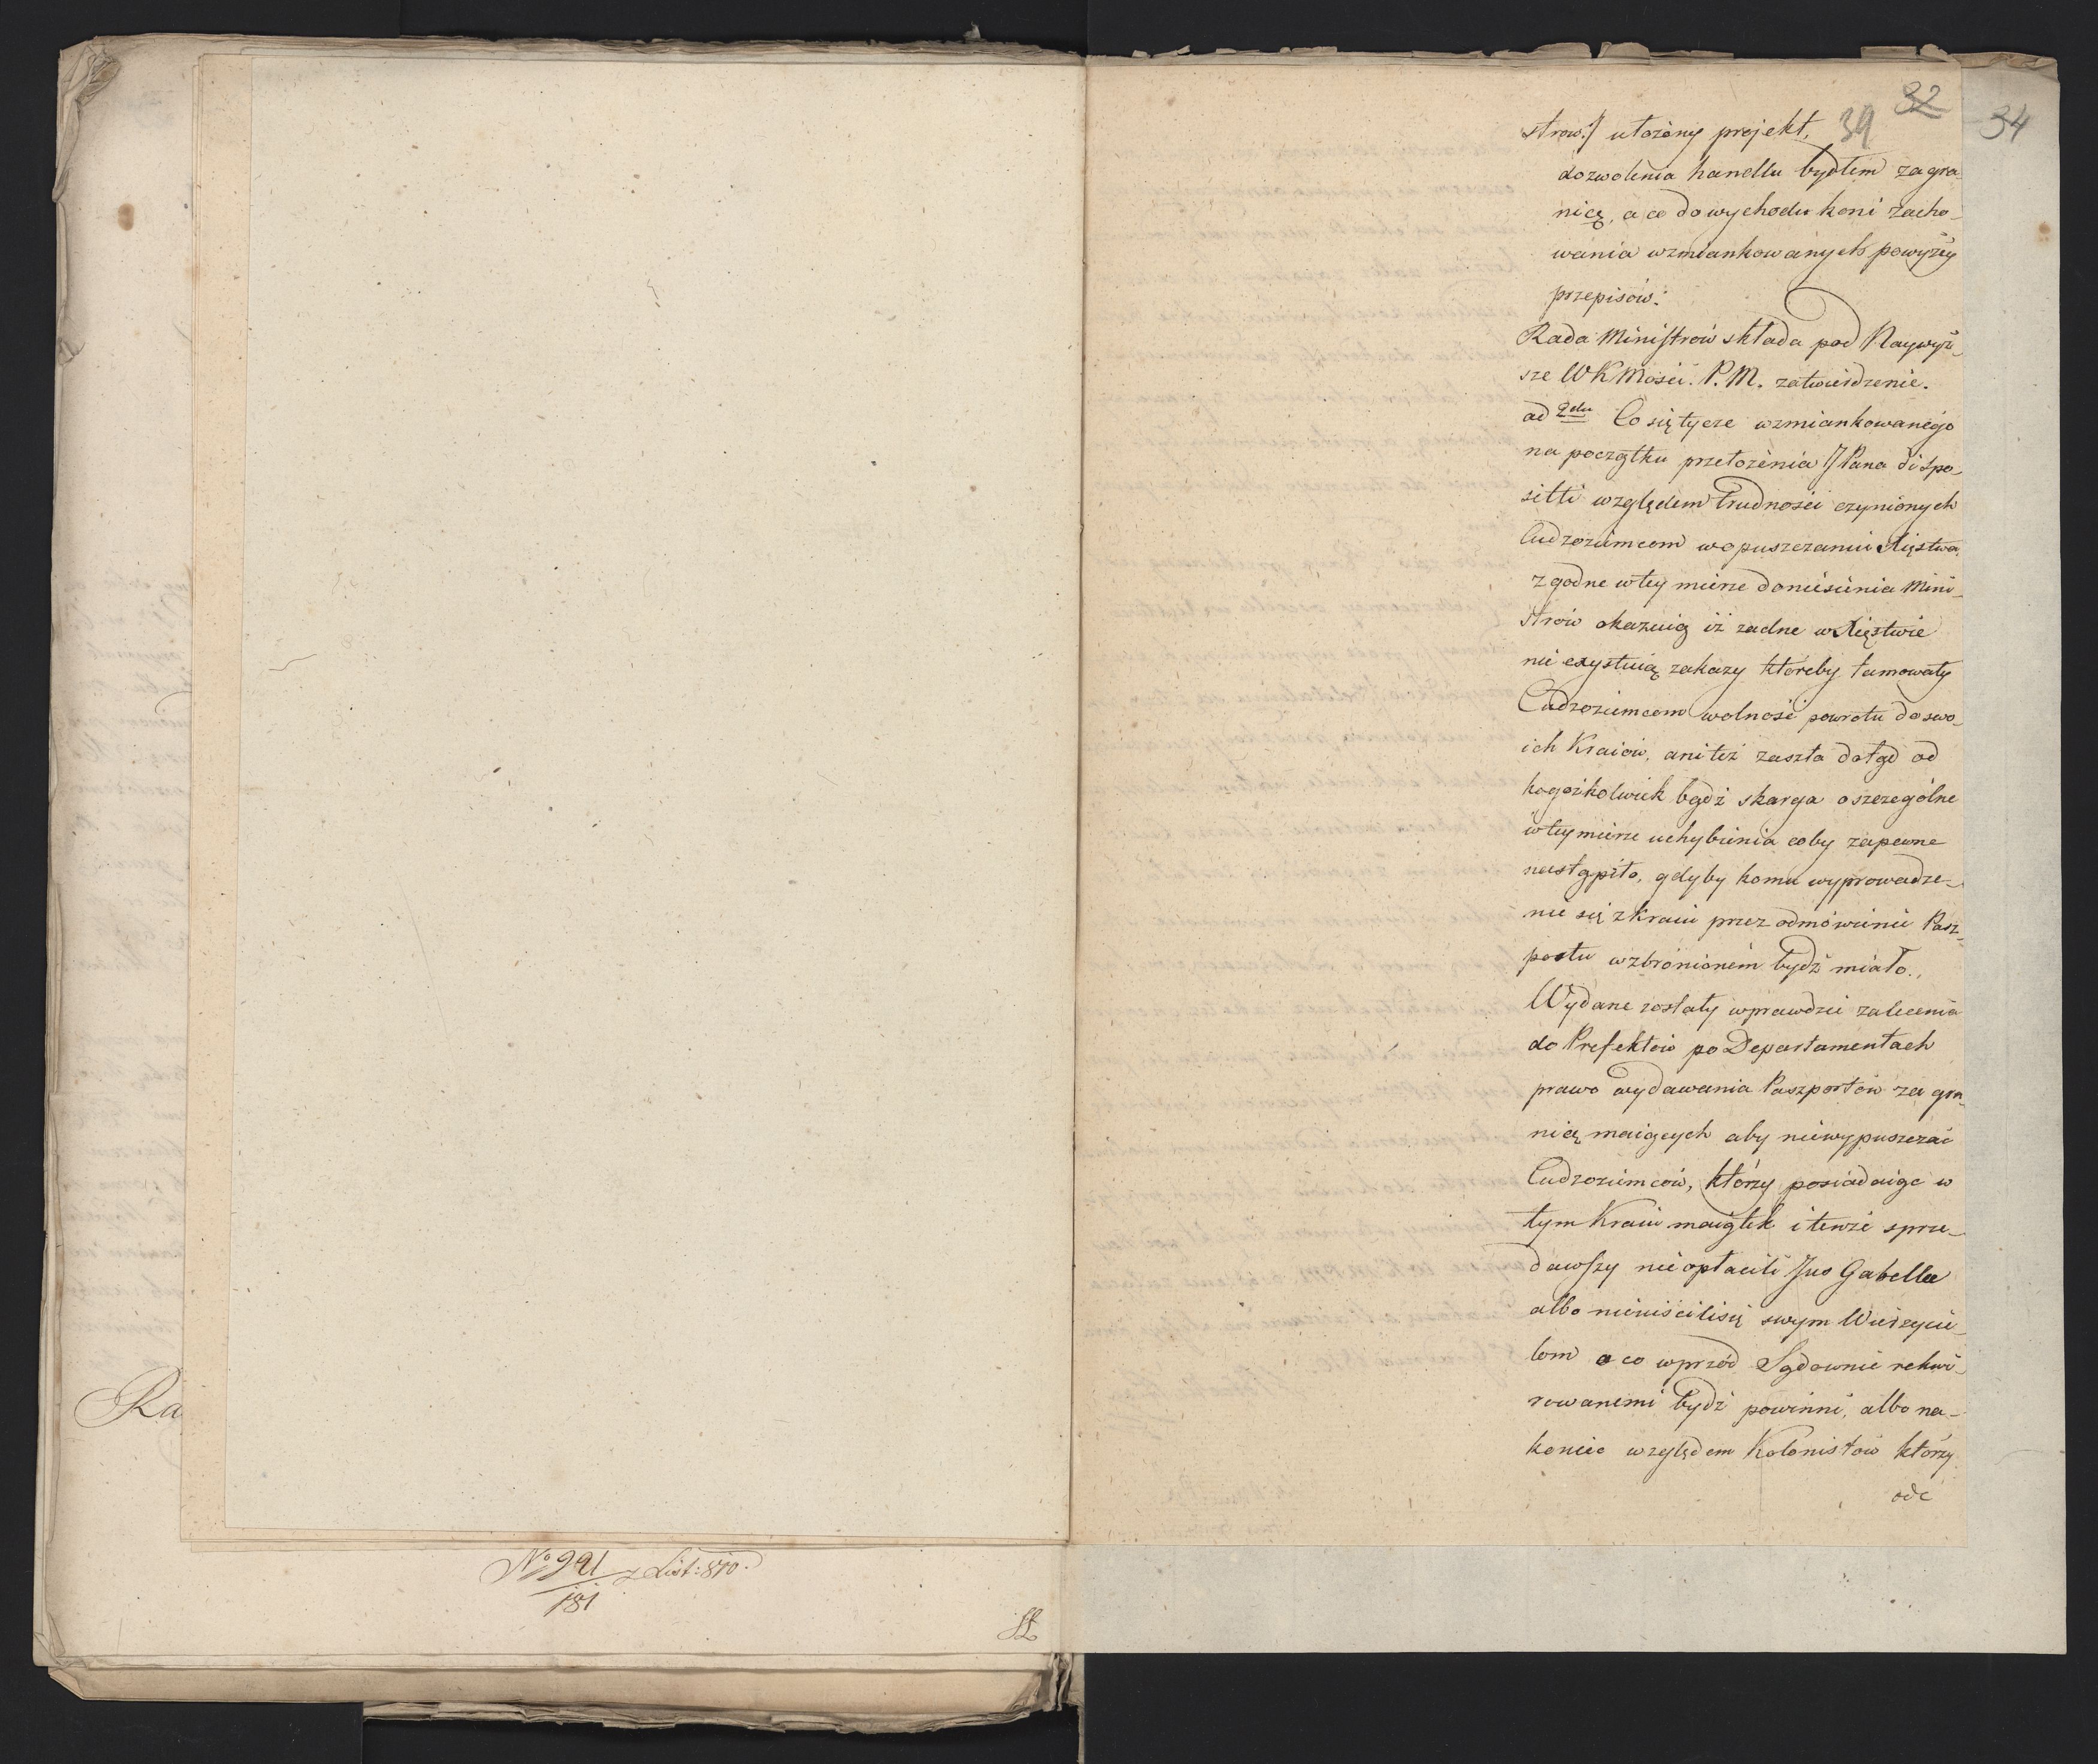 Ra
No 991 z List: 810.
181
32
39
34
strow./ ułożony projekt,
dozwolenia handlu bydłem zagra-
nicą, a co do wychodu koni zacho-
wania wzmiankowanych powyżey
przepisów.
Rada Ministrów składa pod Naywyż-
sze WKMości. P. M. zatwierdzenie.
ad 2du Co się tycze wzmiankowanego
na początku przełożenia JPana
względem trudności czynionych
Cudzoziemcom w opuszczaniu Xięstwa,
zgodne w tey mierze doniesienia Mini-
strów okazuią iż żadne w Xięstwie
nie exystuią zakazy któreby tamowały
Cudzoziemcom wolność powrotu do swo-
ich Kraiów, ani też zaszła dotąd od
kogożkolwiek bądź skarga o szczególne
w tey mierze uchybienia coby zapewne
nastąpiło, gdyby komu wyprowadze-
nie się z Kraiu przez odmówienie Pasz-
portu wzbronionem bydź miało.
Wydane zostały wprawdzie zalecenia
do Prefektów po Departamentach
prawo wydawania Paszportów za gra-
nicę maiących aby niewypuszczać
Cudzoziemców, którzy posiadaiąc w
tym Kraiu maiątek i tenże sprze-
dawszy nie opłacili Jus Gabellae
albo nieuiścili się swym Wierzycie-
lom o co wprzód Sądownie rekwi-
rowanemi bydź powinni, albo na-
koniec względem Kolonistów którzy
odc